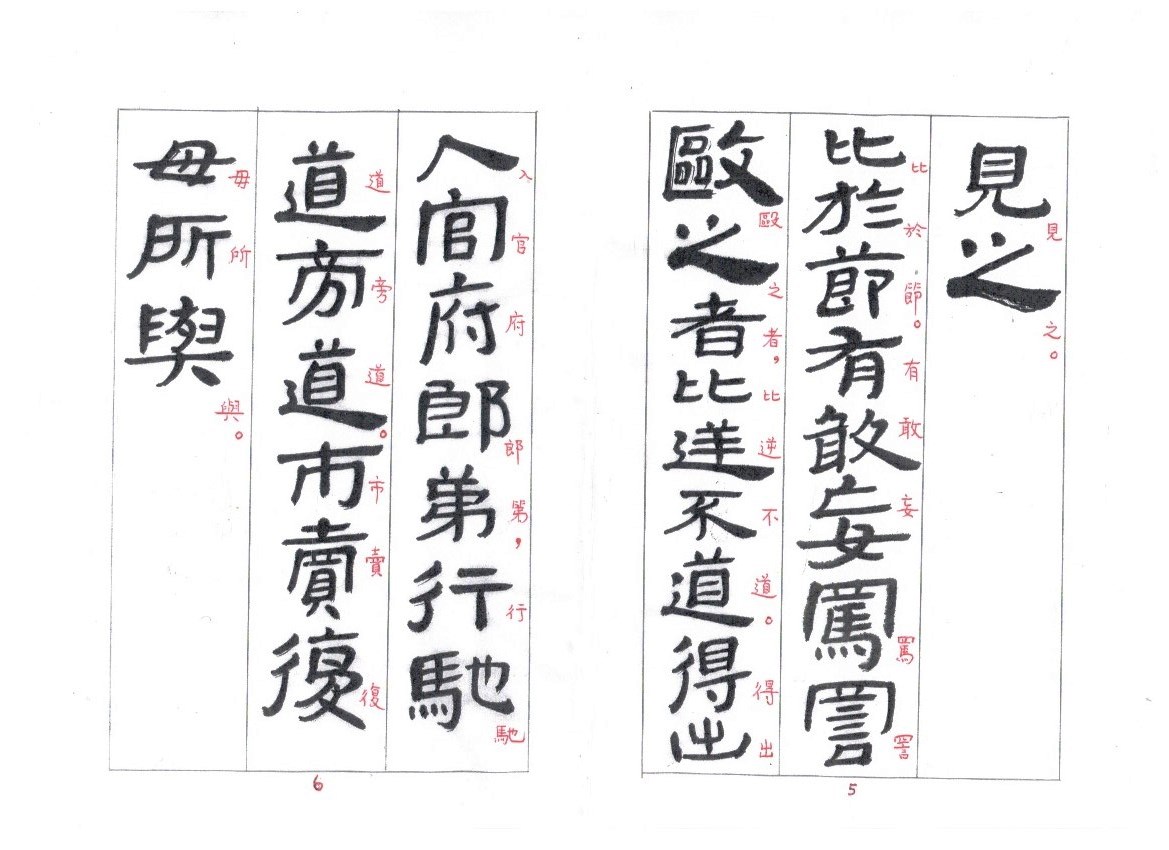 見之
見之。
比於節有敢妄罵詈
比於節。有敢妄罵詈
敺之者比逆不道得出
毆之者，比逆不道。得出
5
入官府郎弟行馳
入官府郎第，行馳
道旁道市賣復
道旁道。市賣復
毋所與
毋所與。
6